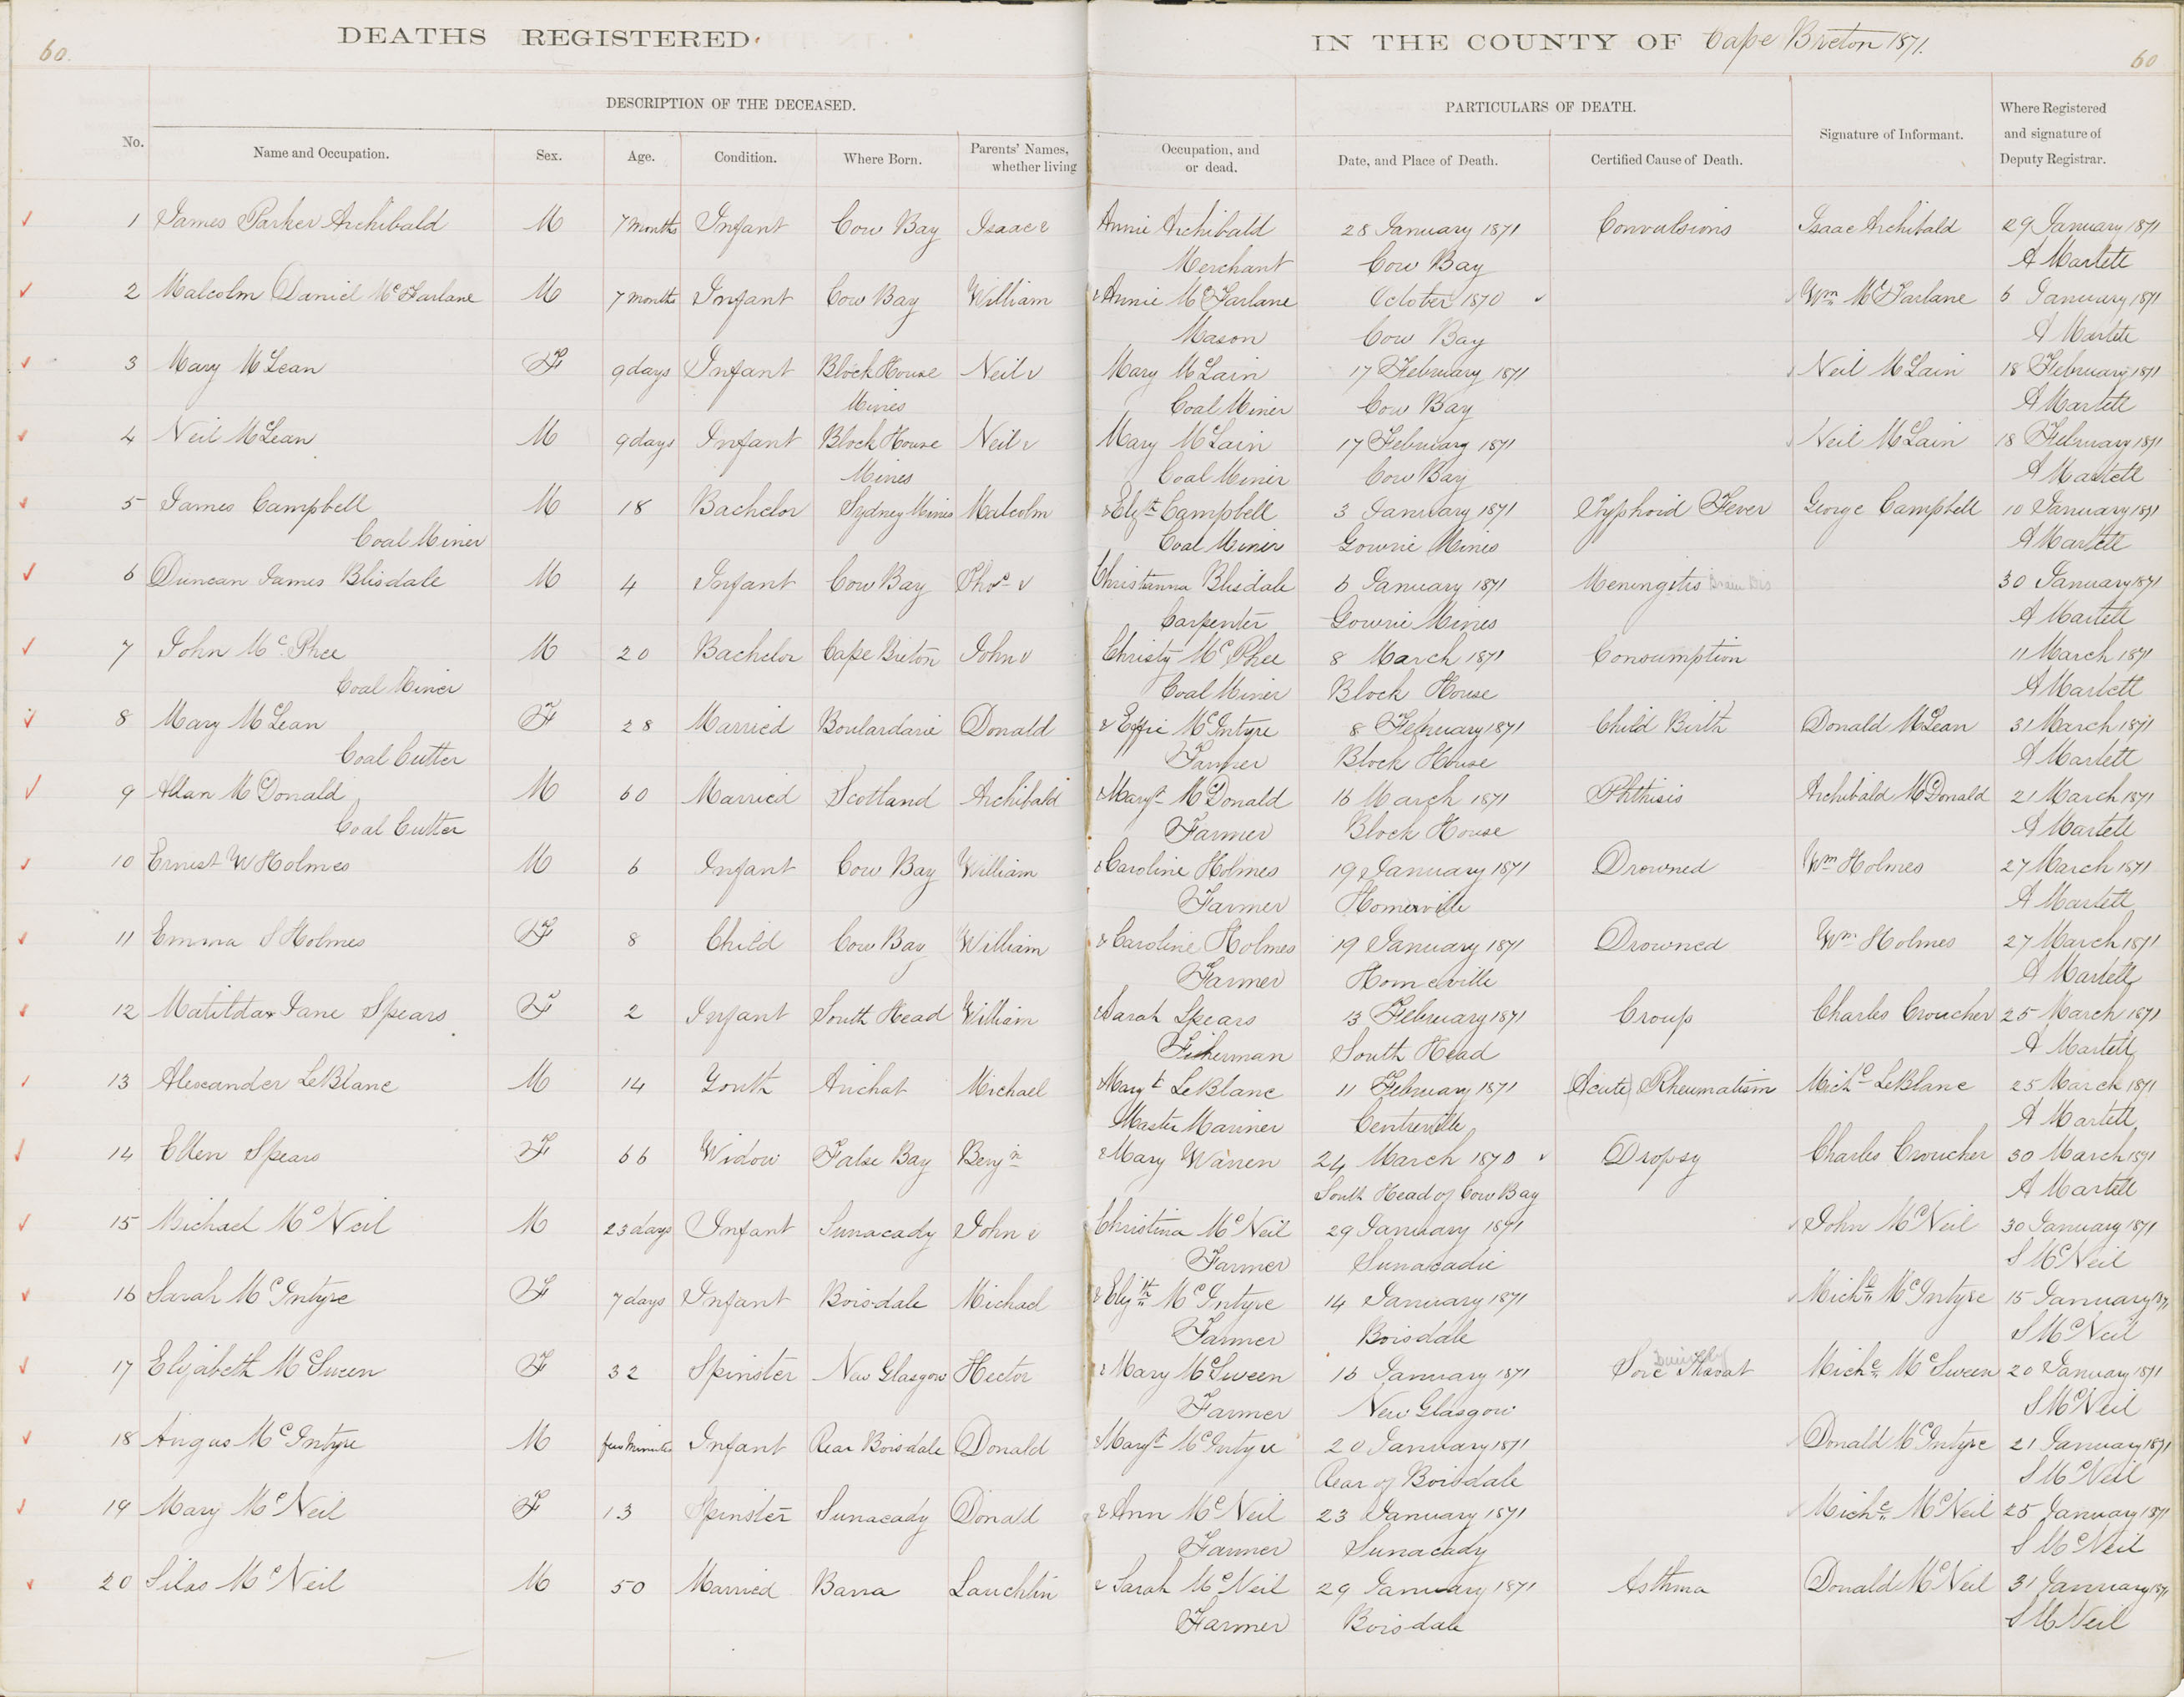 60.
DEATHS REGISTERED
IN THE COUNTY OF Cape Breton 1871.
60
DESCRIPTION OF THE DECEASED.
PARTICULARS OF DEATH.
No.
Name and Occupation.
Sex.
Age.
Condition.
Where Born.
Parents' Names, whether living
Occupation, and or dead.
Date, and Place of Death.
Certified Cause of Death.
Signature of Informant.
Where Registered and signature of Deputy Registrar.
1 James Parker Archibald M 7 Months Infant Cow Bay Isaac & Annie Archibald 28 January 1871 Convulsions Isaac Archibald 29 January 1871
Merchant Cow Bay A Martell
2 Malcolm Daniel McFarlane M 7 Months Infant Cow Bay William & Annie McFarlane October 1870 Wm McFarlane 6 January 1871
Mason Cow Bay A Martell
3 Mary McLean F 9 days Infant Block House Neil & Mary McLain 17 February 1871 Neil McLain 18 February 1871
Mines Coal Miner Cow Bay A Martell
4 Neil McLean M 9 days Infant Block House Neil & Mary McLain 17 February 1871 Neil McLain 18 February 1871
Mines Coal Miner Cow Bay A Martell
5 James Campbell M 18 Bachelor Sydney Mines Malcolm & Elizth Campbell 3 January 1871 Typhoid Fever George Campbell 10 January 1871
Coal Miner Coal Miner Gowrie Mines A Martell
6 Duncan James Blisdale M 4 Infant Cow Bay Thos & Christanna Blisdale 6 January 1871 Meningitis Brain Dis 30 January 1871
Carpenter Gowrie Mines A Martell
7 John McPhee M 20 Bachelor Cape Breton John & Christy McPhee 8 March 1871 Consumption 11 March 1871
Coal Miner Coal Miner Block House A Martell
8 Mary McLean F 28 Married Boulardarie Donald & Effie McIntyre 8 February 1871 Child Birth Donald McLean 31 March 1871
Coal Cutter Farmer Block House A Martell
9 Allan McDonald M 60 Married Scotland Archibald & Maryt McDonald 16 March 1871 Phthisis Archibald McDonald 21 March 1871
Coal Cutter Farmer Block House A Martell
10 Ernest W Holmes M 6 Infant Cow Bay William & Caroline Holmes 19 January 1871 Drowned Wm Holmes 27 March 1871
Farmer Homerville A Martell
11 Emma S Holmes F 8 Child Cow Bay William & Caroline Holmes 19 January 1871 Drowned Wm Holmes 27 March 1871
Farmer Homeville A Martell
12 Matilda Jane Spears F 2 Infant South Head William & Sarah Spears 13 February 1871 Croup Charles Croucher 25 March 1871
Fisherman South Head A Martell
13 Alexander LeBlanc M 14 Youth Arichat Michael & Maryt LeBlanc 11 February 1871 (Acute) Rheumatism Michl LeBlanc 25 March 1871
Master Mariner Centreville A Martell
14 Ellen Spears F 66 Widow False Bay Benjn & Mary Warren 24 March 1870 Dropsy Charles Croucher 30 March 1871
South Head of Cow Bay A Martell
15 Michael McNeil M 23 days Infant Sunacady John & Christina McNeil 29 January 1871 John McNeil 30 January 1871
Farmer Sunacadie S McNeil
16 Sarah McIntyre F 7 days Infant Boisdale Michael & Elizth McIntyre 14 January 1871 Michl McIntyre 15 January 1871
Farmer Boisdale S McNeil
17 Elizabeth McSween F 32 Spinster New Glasgow Hector & Mary McSween 16 January 1871 Sore Throat Michl McSween 20 January 1871
Farmer New Glasgow S McNeil
18 Angus McIntyre M few Minutes Infant Rear Boisdale Donald & Maryt McIntyre 20 January 1871 Donald McIntyre 21 January 1871
Rear of Boisdale S McNeil
19 Mary McNeil F 13 Spinster Sunacady Donald & Ann McNeil 23 January 1871 Michl McNeil 25 January 1871
Farmer Sunacady S McNeil
20 Silas McNeil M 50 Married Barra Lauchlin & Sarah McNeil 29 January 1871 Asthma Donald McNeil 31 January 1871
Farmer Boisdale S McNeil